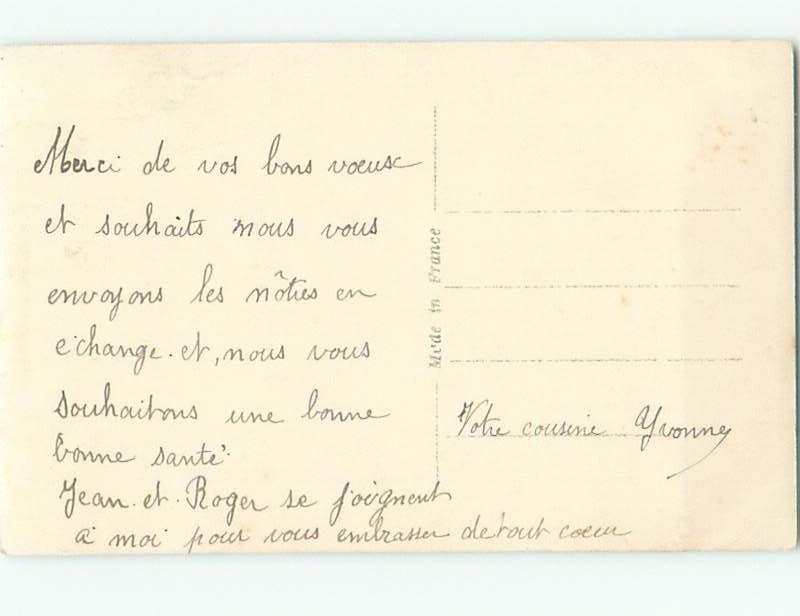 Merci de vos bons voeux
et souhaits nous vous
envoyons les nôtres en
échange. et, nous vous
souhaitons une bonne
bonne santé.
Jean. et. Roger se joignent
à moi pour vous embrasser de tout coeur
Made in France
Votre cousine Yvonne